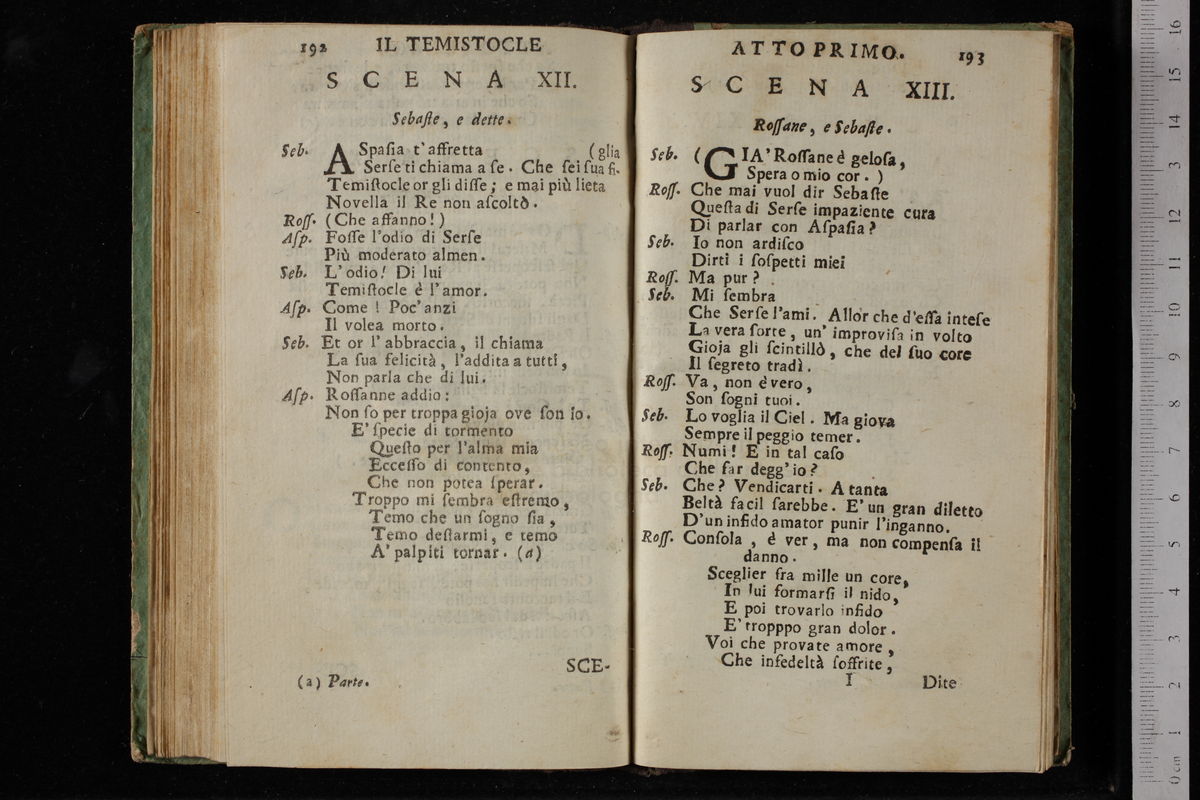 192 IL TEMISTOCLE
SCENA XII.
Sebaſte, e dette.
Seb. ASpaſia t'affretta (glia
Serſe ti chiama a ſe. Che ſei ſua fi-
Temiſtocle or gli diſſe; e mai più lieta
Novella il Re non aſcoltò.
Roſſ. (Che affanno!)
Aſp. Foſſe l'odio di Serſe
Più moderato almen.
Seb. L'odio! Di lui
Temiſtocle è l'amor.
Aſp. Come! Poc'anzi
Il volea morto.
Seb. Et or l'abbraccia, il chiama
La ſua felicità, l'addita a tutti,
Non parla che di lui.
Aſp. Roſſanne addio:
Non ſo per troppa gioja ove ſon io.
E' ſpecie di tormento
Queſto per l'alma mia
Ecceſſo di contento,
Che non potea ſperar.
Troppo mi ſembra eſtremo,
Temo che un ſogno ſia,
Temo deſtarmi, e temo
A' palpiti tornar. (a)
SCE-
(a) Parte.
ATTO PRIMO. 193
SCENA XIII.
Roſſane, e Sebaſte.
Seb. (GIA' Roſſane è geloſa,
Spera o mio cor.)
Roſſ. Che mai vuol dir Sebaſte
Queſta di Serſe impaziente cura
Di parlar con Aſpaſia?
Seb. Io non ardiſco
Dirti i ſoſpetti miei
Roſſ. Ma pur?
Seb. Mi ſembra
Che Serſe l'ami. Allor che d'eſſa inteſe
La vera ſorte, un' improviſa in volto
Gioja gli ſcintillò, che del ſuo core
Il ſegreto tradì.
Roſſ. Va, non è vero,
Son ſogni tuoi.
Seb. Lo voglia il Ciel. Ma giova
Sempre il peggio temer.
Roſſ. Numi! E in tal caſo
Che far degg'io?
Seb. Che? Vendicarti. A tanta
Beltà facil ſarebbe. E' un gran diletto
D'un infido amator punir l'inganno.
Roſſ. Conſola, è ver, ma non compenſa il
danno.
Sceglier fra mille un core,
In lui formarſi il nido,
E poi trovarlo infido
E' tropppo gran dolor.
Voi che provate amore,
Che infedeltà ſoffrite,
I Dite
16
15
14
13
12
11
10
9
8
7
6
5
4
3
2
1
0 cm